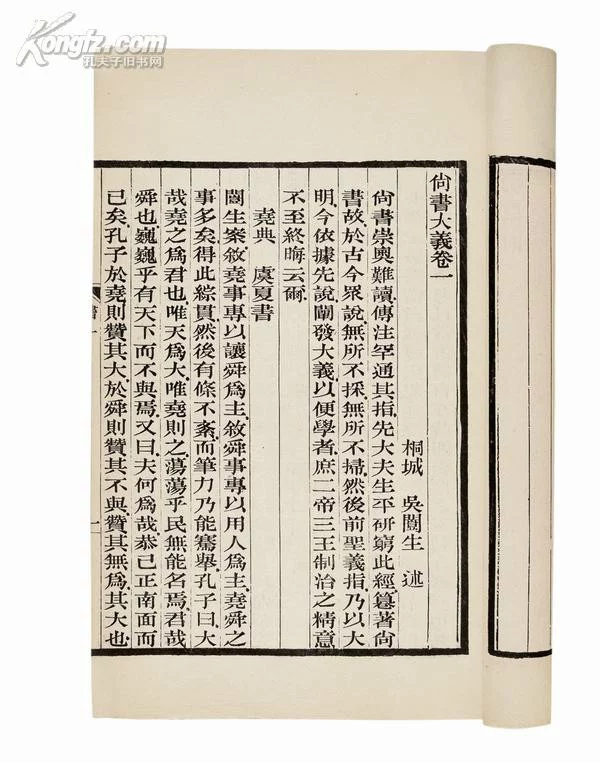 Kongfz.com
孔夫子旧书网
尙書大義卷一
桐城　吳闓生　述
尙書崇奧難讀傳注罕通其指先大夫生平硏窮此經篹著尙
書故於古今眾說無所不採無所不掃然後前聖義指乃以大
明今依據先說闡發大義以便學者庶二帝三王制治之精意
不至終晦云爾
堯典　虞夏書
闓生案敘堯事專以讓舜爲主敘舜事專以用人爲主堯舜之
事多矣得此綜貫然後有條不紊而筆力乃能騫舉孔子曰大
哉堯之爲君也唯天爲大唯堯則之蕩蕩乎民無能名焉君哉
舜也巍巍乎有天下而不與焉又曰夫何爲哉恭己正南面而
已矣孔子於堯則贊其大於舜則贊其不與贊其無爲其大也